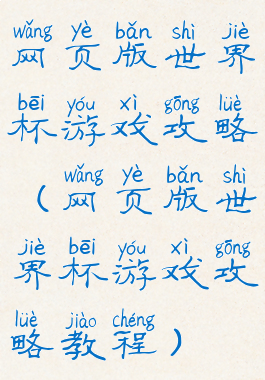 wǎng yè bǎn shì jiè
网页版世界
bēi yóu xì gōng lüè
杯游戏攻略
wǎng yè bǎn shì
（网页版世
jiè bēi yóu xì gōng
界杯游戏攻
lüè jiào chéng
略教程）